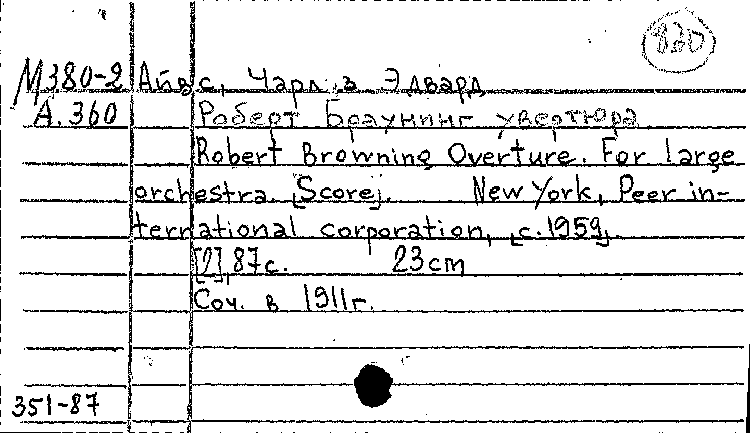 820
М380-2 Айвс, Чарлз Эдвард
А.360 Роберт Браунинг увертюра
Robert Browning Overture. For large
orchestra. [Score]. New York, Peer in-
ternational corporation, [c.1959].
[2], 87с. 23cm
Соч. в 1911г.
351-87